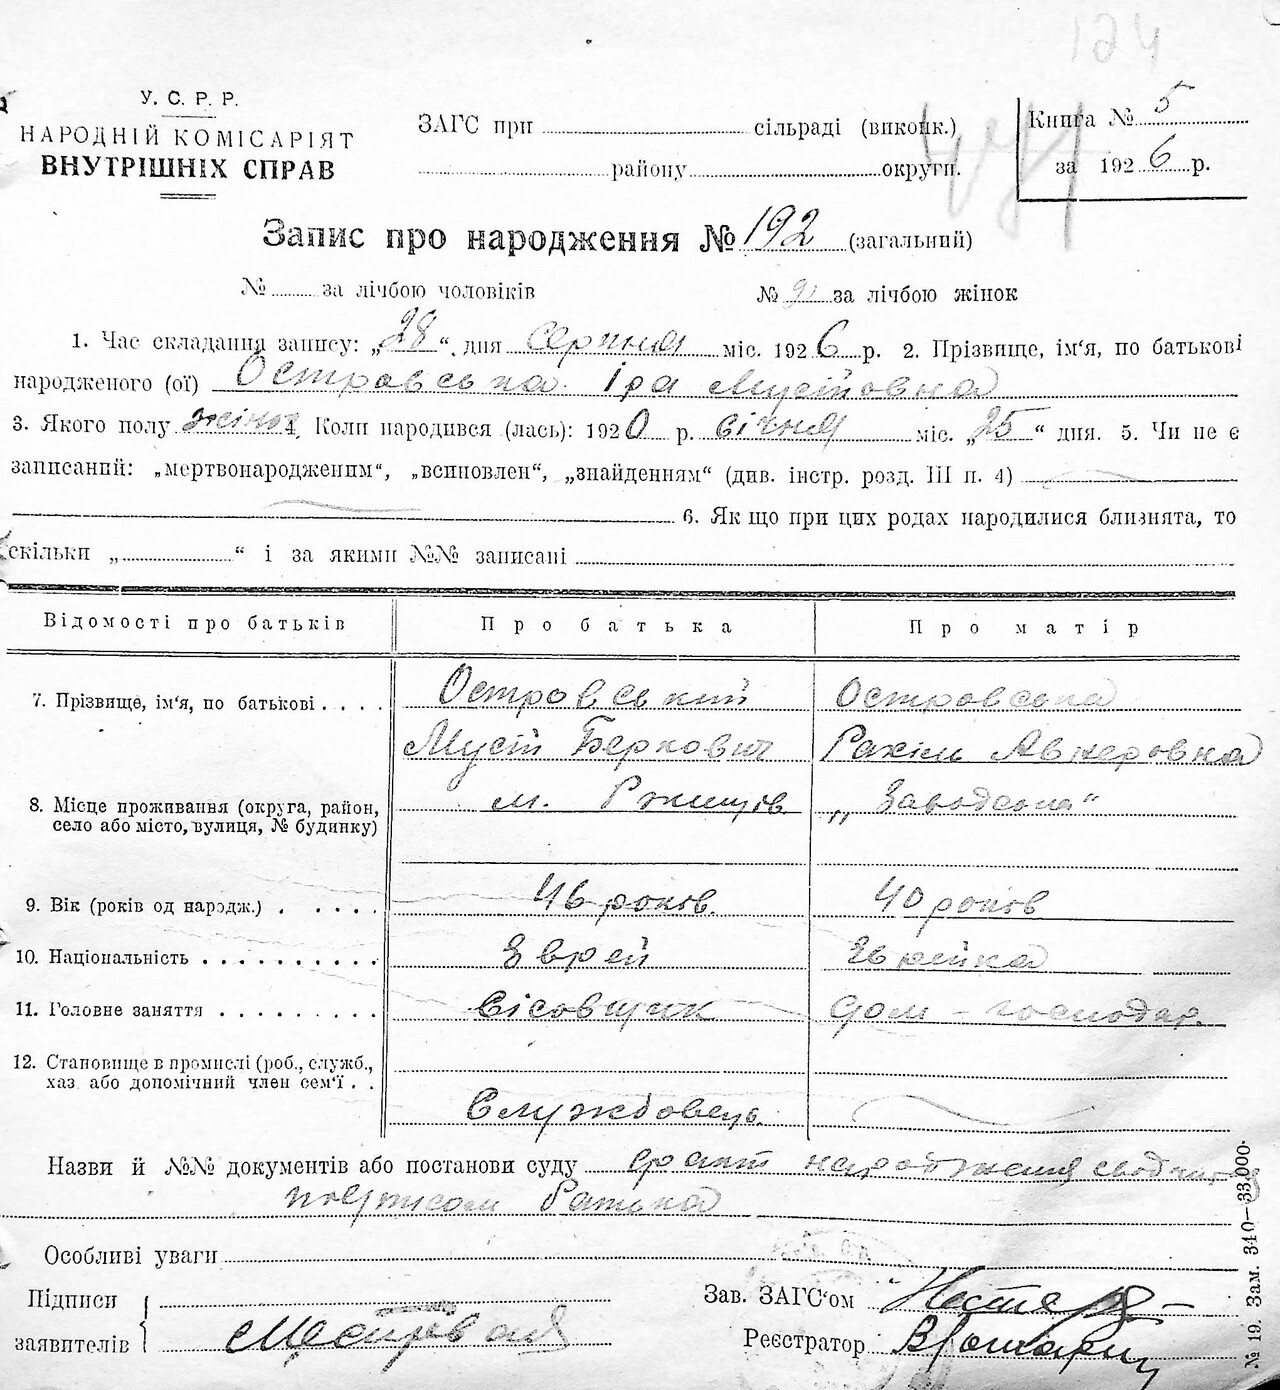 124
У. С. Р. Р.
НАРОДНІЙ КОМІСАРІЯТ
ВНУТРІШНІХ СПРАВ
ЗАГС при сільраді (виконк.)
району округи.
Книга № 5
за 1926 р.
Запис про народження № 192 (загальний)
№ за лічбою чоловіків № 91 за лічбою жінок
1. Час складання запису: „28“ дня серпня міс. 1926 р. 2. Прізвище, ім'я, по батькові
народженого (ої) Островська Іра Мусіїовна
3. Якого полу жіноч. Коли народився (лась): 1920 р. січня міс. „25“ дня. 5. Чи не є
записаний: „мертвонародженим“, „всиновлен“, „знайденням“ (див. інстр. розд. III п. 4)
6. Як що при цих родах народилися близнята, то
скільки „ “ і за якими №№ записані
Відомості про батьків Про батька Про матір
7. Прізвище, ім'я, по батькові . . . . Островський Островська
Мусій Беркович Рахіль Авнеровна
8. Місце проживання (округа, район, м. Ржищів „Заводська“
село або місто, вулиця, № будинку)
9. Вік (років од народж.) . . . . . 46 років. 40 років
10. Національність . . . . . . . . . . Єврей Єврейка
11. Головне заняття . . . . . . . . . дом-господар.
12. Становище в промислі (роб., служб.,
хаз. або допомічний член сем'ї . . Службовець.
Назви й №№ документів або постанови суду факт народження
підписом батька
Особливі уваги
Підписи
заявителів
Зав. ЗАГС'ом
Реєстратор
№ 19. Зам. 340—33.000.